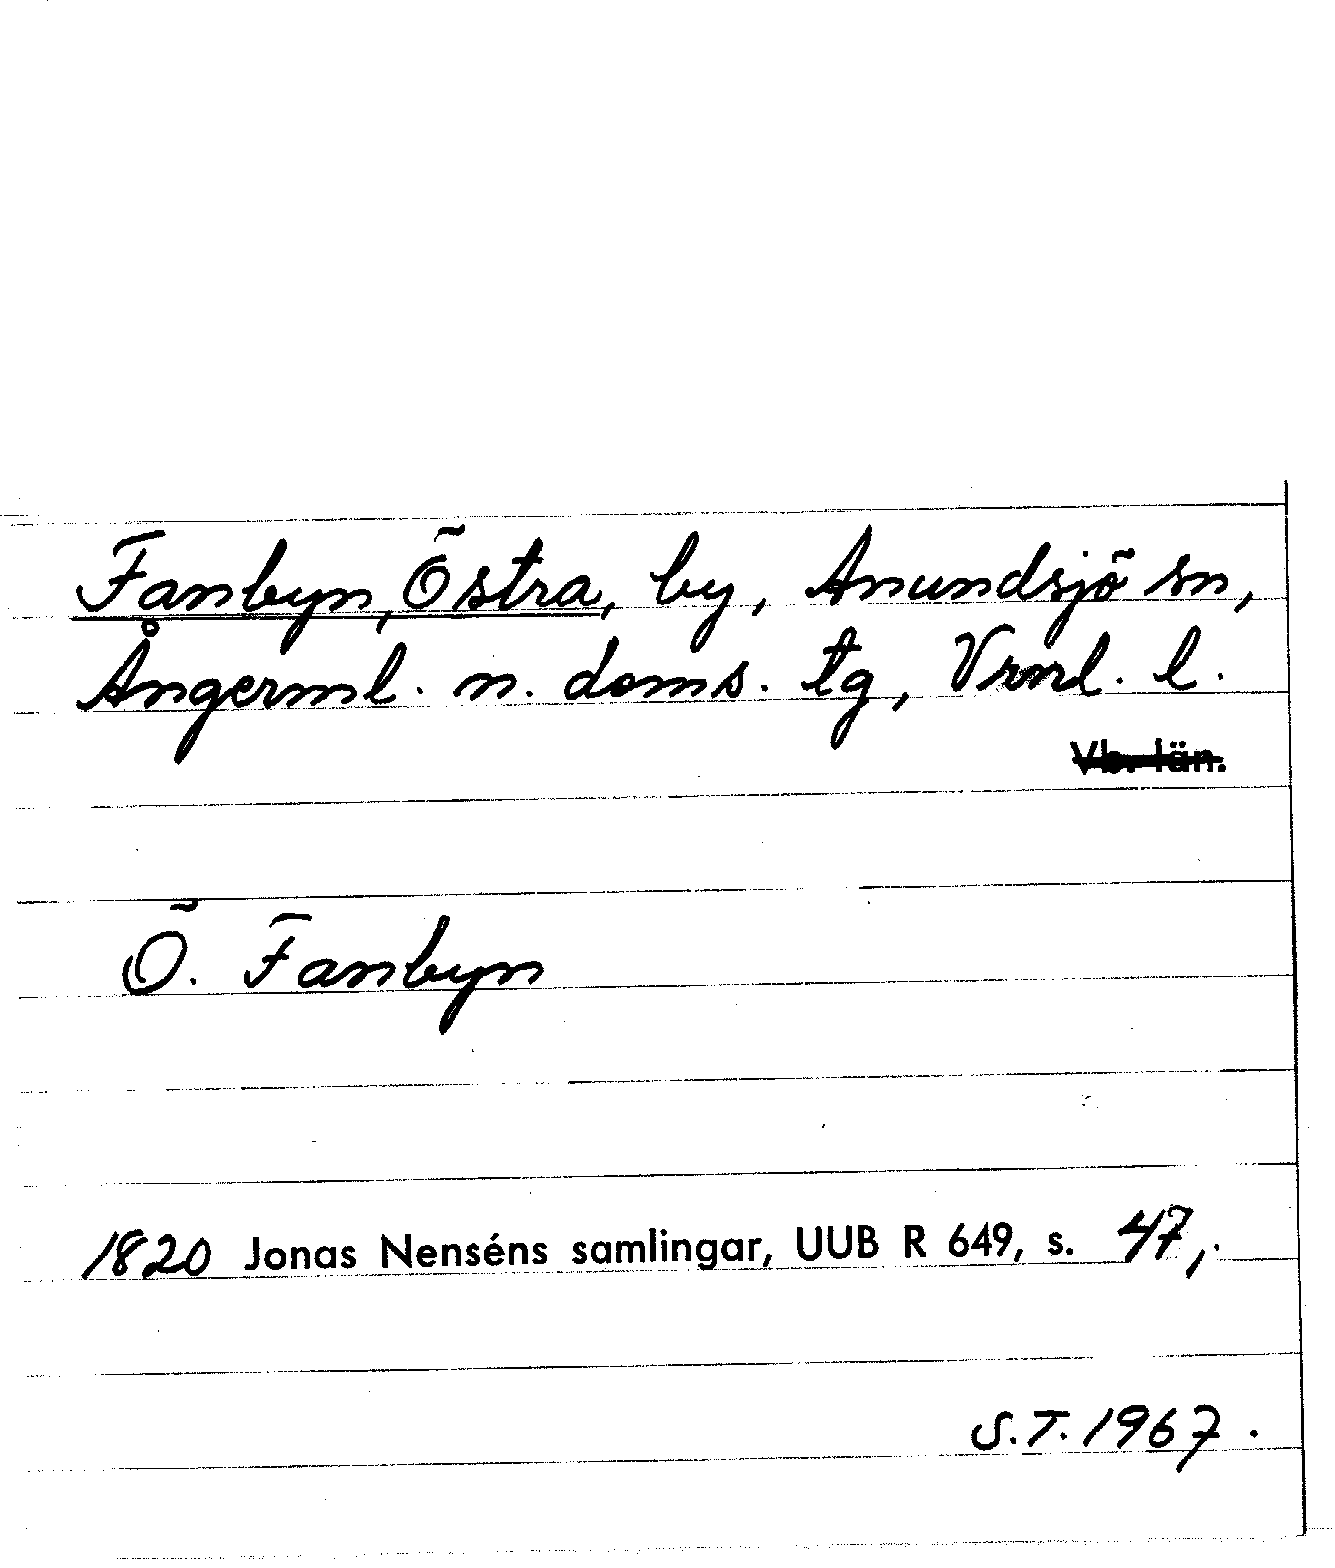 Fanbyn, Östra, by, Anundsjö sn,
Ångerml. n. doms. tg, Vrnl. l.
Vb. län.
Ö. Fanbyn
1820 Jonas Nenséns samlingar, UUB R 649, s. 47,.
S.T. 1967.